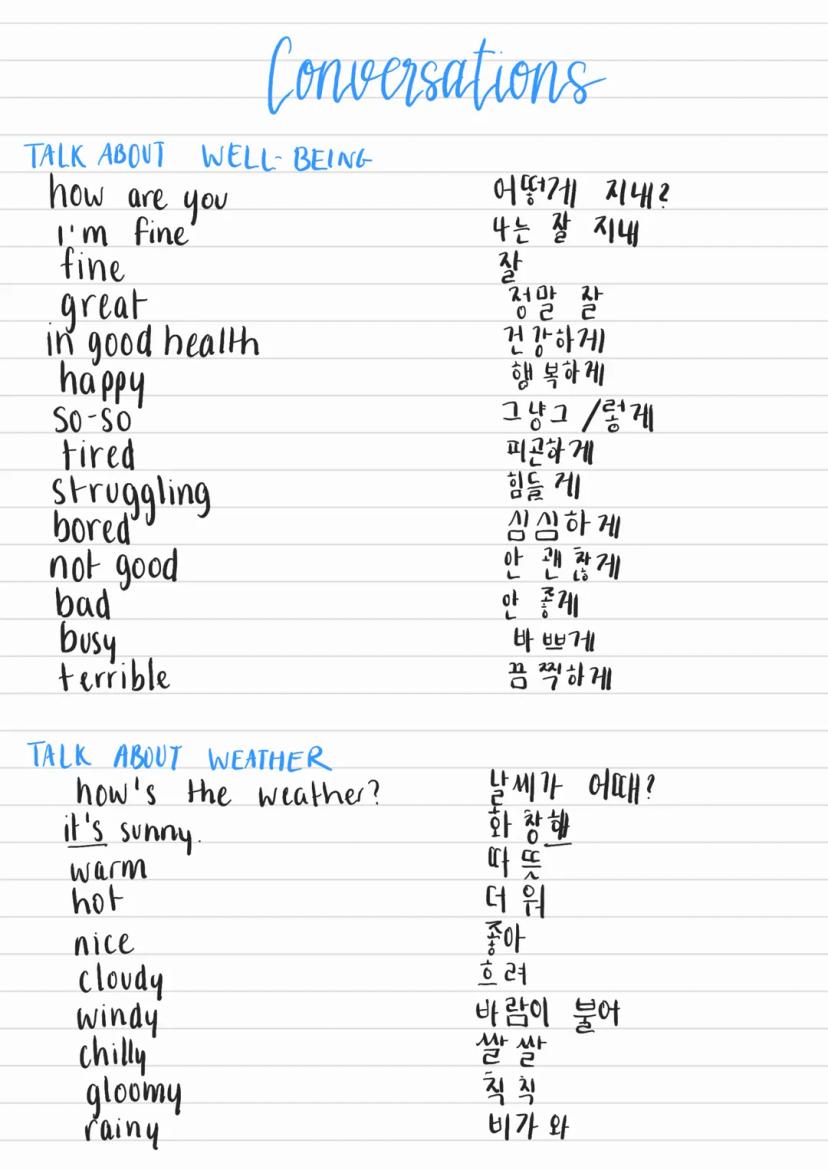 Conversations
TALK ABOUT WELL-BEING
how are you 어떻게 지내?
I'm fine 나는 잘 지내
fine 잘
great 정말 잘
in good health 건강하게
happy 행복하게
so-so 그냥그/렇게
tired 피곤하게
struggling 힘들게
bored 심심하게
not good 안 괜찮게
bad 안 좋게
busy 바쁘게
terrible 끔찍하게
TALK ABOUT WEATHER
how's the weather? 날씨가 어때?
it's sunny. 화창해
warm 따뜻
hot 더워
nice 좋아
cloudy 흐려
windy 바람이 불어
chilly 쌀쌀
gloomy 칙칙
rainy 비가 와